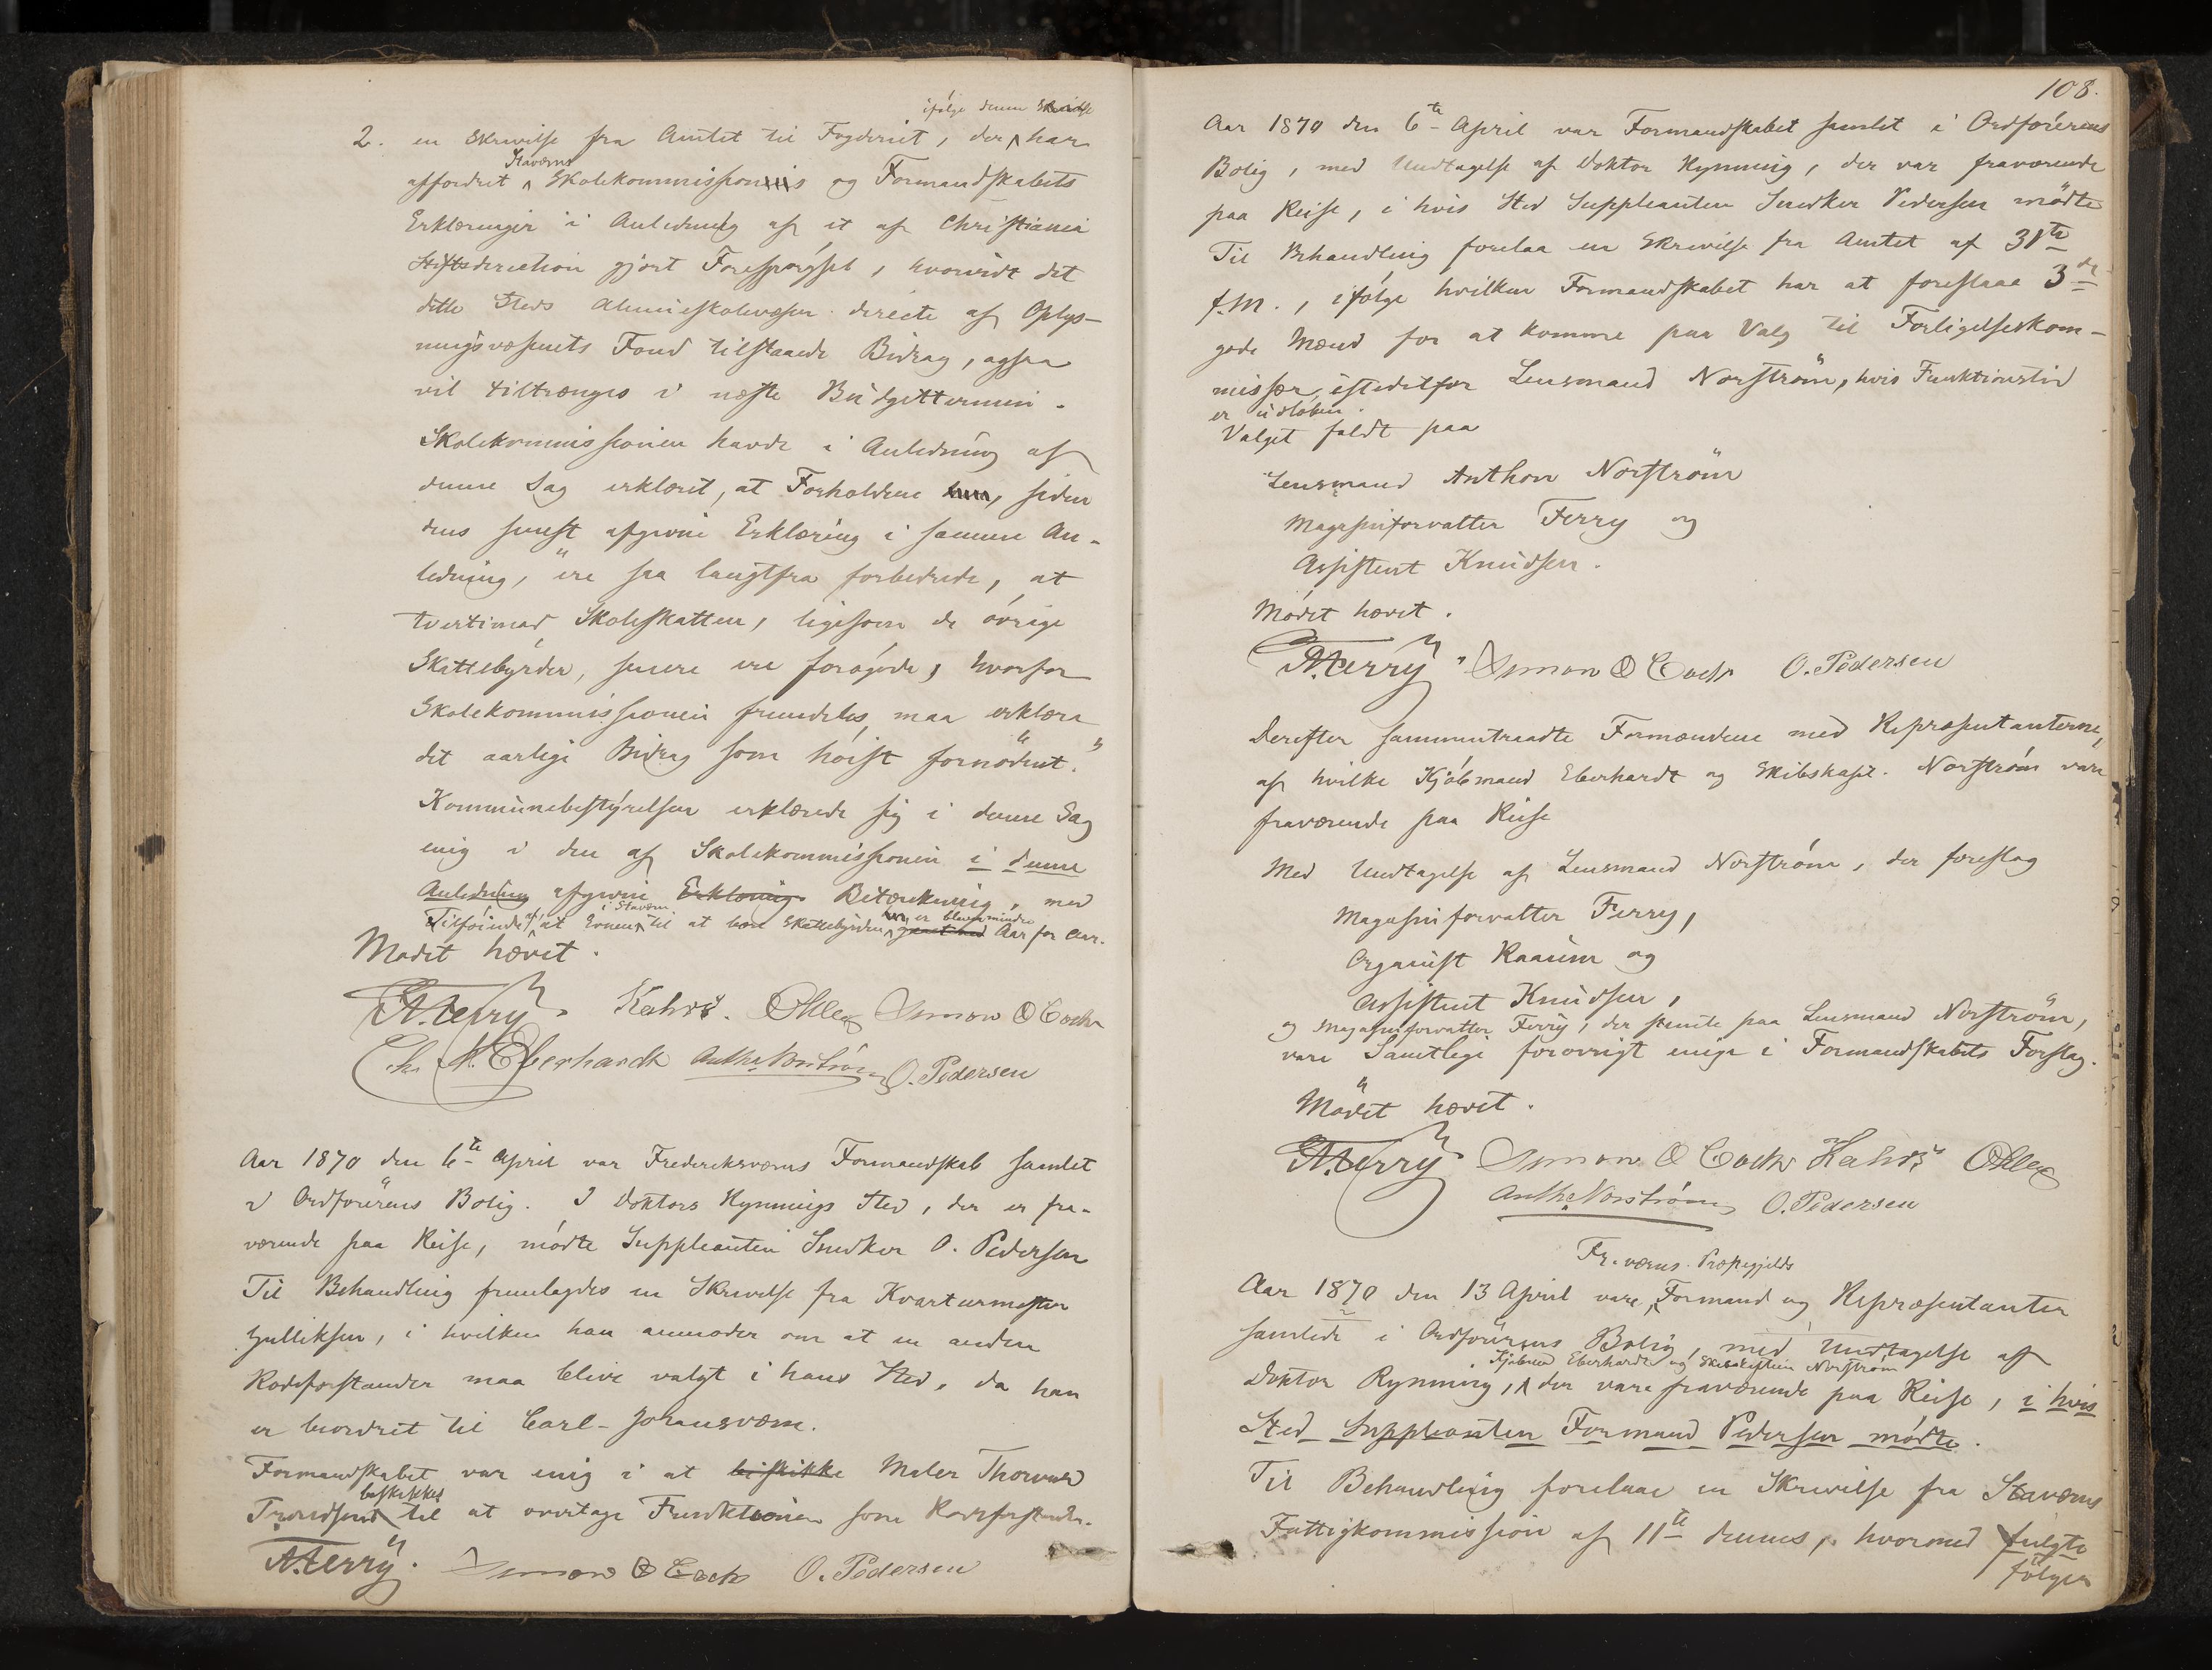 ifølge denne Skrivelse
2. en Skrivelse fra Amtet til Fogderiet, der har
Staværns
affordret Skolekommissionens og Formandskabets
Erklæringer i Anledning af et af Christiania
Stiftsdirection gjort Forespørgsel, hvorvidt det
dette Steds Almueskolevæsen directe af Oplys-
ningsvæsenets Fond tilstaaede Bidrag, ogsaa
vil tiltrænges i næste Budgettermin.
Skolekommissionen havde i Anledning af
denne Sag erklæret, at Forholdene her, siden
dens senest afgivne Erklæring i samme An-
ledning, "ere saa langtfra forbedrede, at
tvertimod Skoleskatten, ligesom de øvrige
Skattebyrder, senere ere forøgede, hvorfor
Skolekommissionen fremdeles maa erklære
det aarlige Bidrag som høist fornødent."
Kommunebestyrelsen erklærede sig i denne Sag
enig i den af Skolekommissionen i denne
Anledning afgivne Erklæring Betænkning, med
i Stavern her er bleven mindre
Tilføiende af, at Evnen til at bære Skattebyrden Aar for Aar.
Mødet hævet.
A. Ferry. Kahrs. Simon O Coch
Chr. A. Eberhardt Anth. Norström O. Pedersen
Aar 1870 den 6te April var Frederiksværns Formandskab samlet
i Ordførerens Bolig. I Doktors Rynnings Sted, der er fra-
værende paa Reise, mödte Suppleanten Snedker O. Pedersen
Til Behandling fremlagdes en Skrivelse fra Kvartermester
Gulliksen, i hvilken han anmoder om at en anden
Rodeforstander maa blive valgt i hans Sted, da han
er beordret til Carl-Johansværn.
Formandskabet var enig i at beskikke Maler Thorvald
beskikkes
Trondsen til at overtage Funktionen som Rodeforstander.
A. Ferry. Simon O Coch O. Pedersen
108.
Aar 1870 den 6te April var Formandskabet samlet i Ordførerens
Bolig, med Undtagelse af Doktor Rynning, der var fraværende
paa Reise, i hvis Sted Suppleanten Snedker Pedersen mödte
Til Behandling forelaa en Skrivelse fra Amtet af 31te
f.M., ifølge hvilken Formandskabet har at foreslaae 3de
gode Mænd for at komme paa Valg til Forligelseskom-
missær, istedetfor Lensmand Norström, hvis Funktionstid
er udløben.
Valget faldt paa
Lensmand Anthon Norström
Magasinforvalter Ferry og
Assistent Knudsen.
Mødet hævet.
A. Ferry. Simon O Coch O. Pedersen
Derefter sammentraadte Formændene med Repræsentanterne,
af hvilke Kjöbmand Eberhardt og Skibskapt. Norström vare
fraværende paa Reise
Med Undtagelse af Lensmand Norström, der foreslog
Magasinforvalter Ferry,
Organist Raaum og
Assistent Knudsen,
og Magasinforvalter Ferry, der stemte paa Lensmand Norström,
vare Samtlige forøvrigt enige i Formandskabets Forslag.
Mödet hævet.
A. Ferry Simon O Coch Kahrs
Anth. Norström O. Pedersen
Fr.værns Præstegjelds
Aar 1870 den 13 April vare Formænd og Repræsentanter
samlede i Ordførerens Bolig, med Undtagelse af
Kjöbmd Eberhardt og Skibskaptein Norström
Doktor Rynning, der vare fraværende paa Reise, i hvis
Sted Suppleanten Formand Pedersen mödte.
Til Behandling forelaae en Skrivelse fra Staværns
Fattigkommission af 11te dennes, hvormed fulgte
fölger